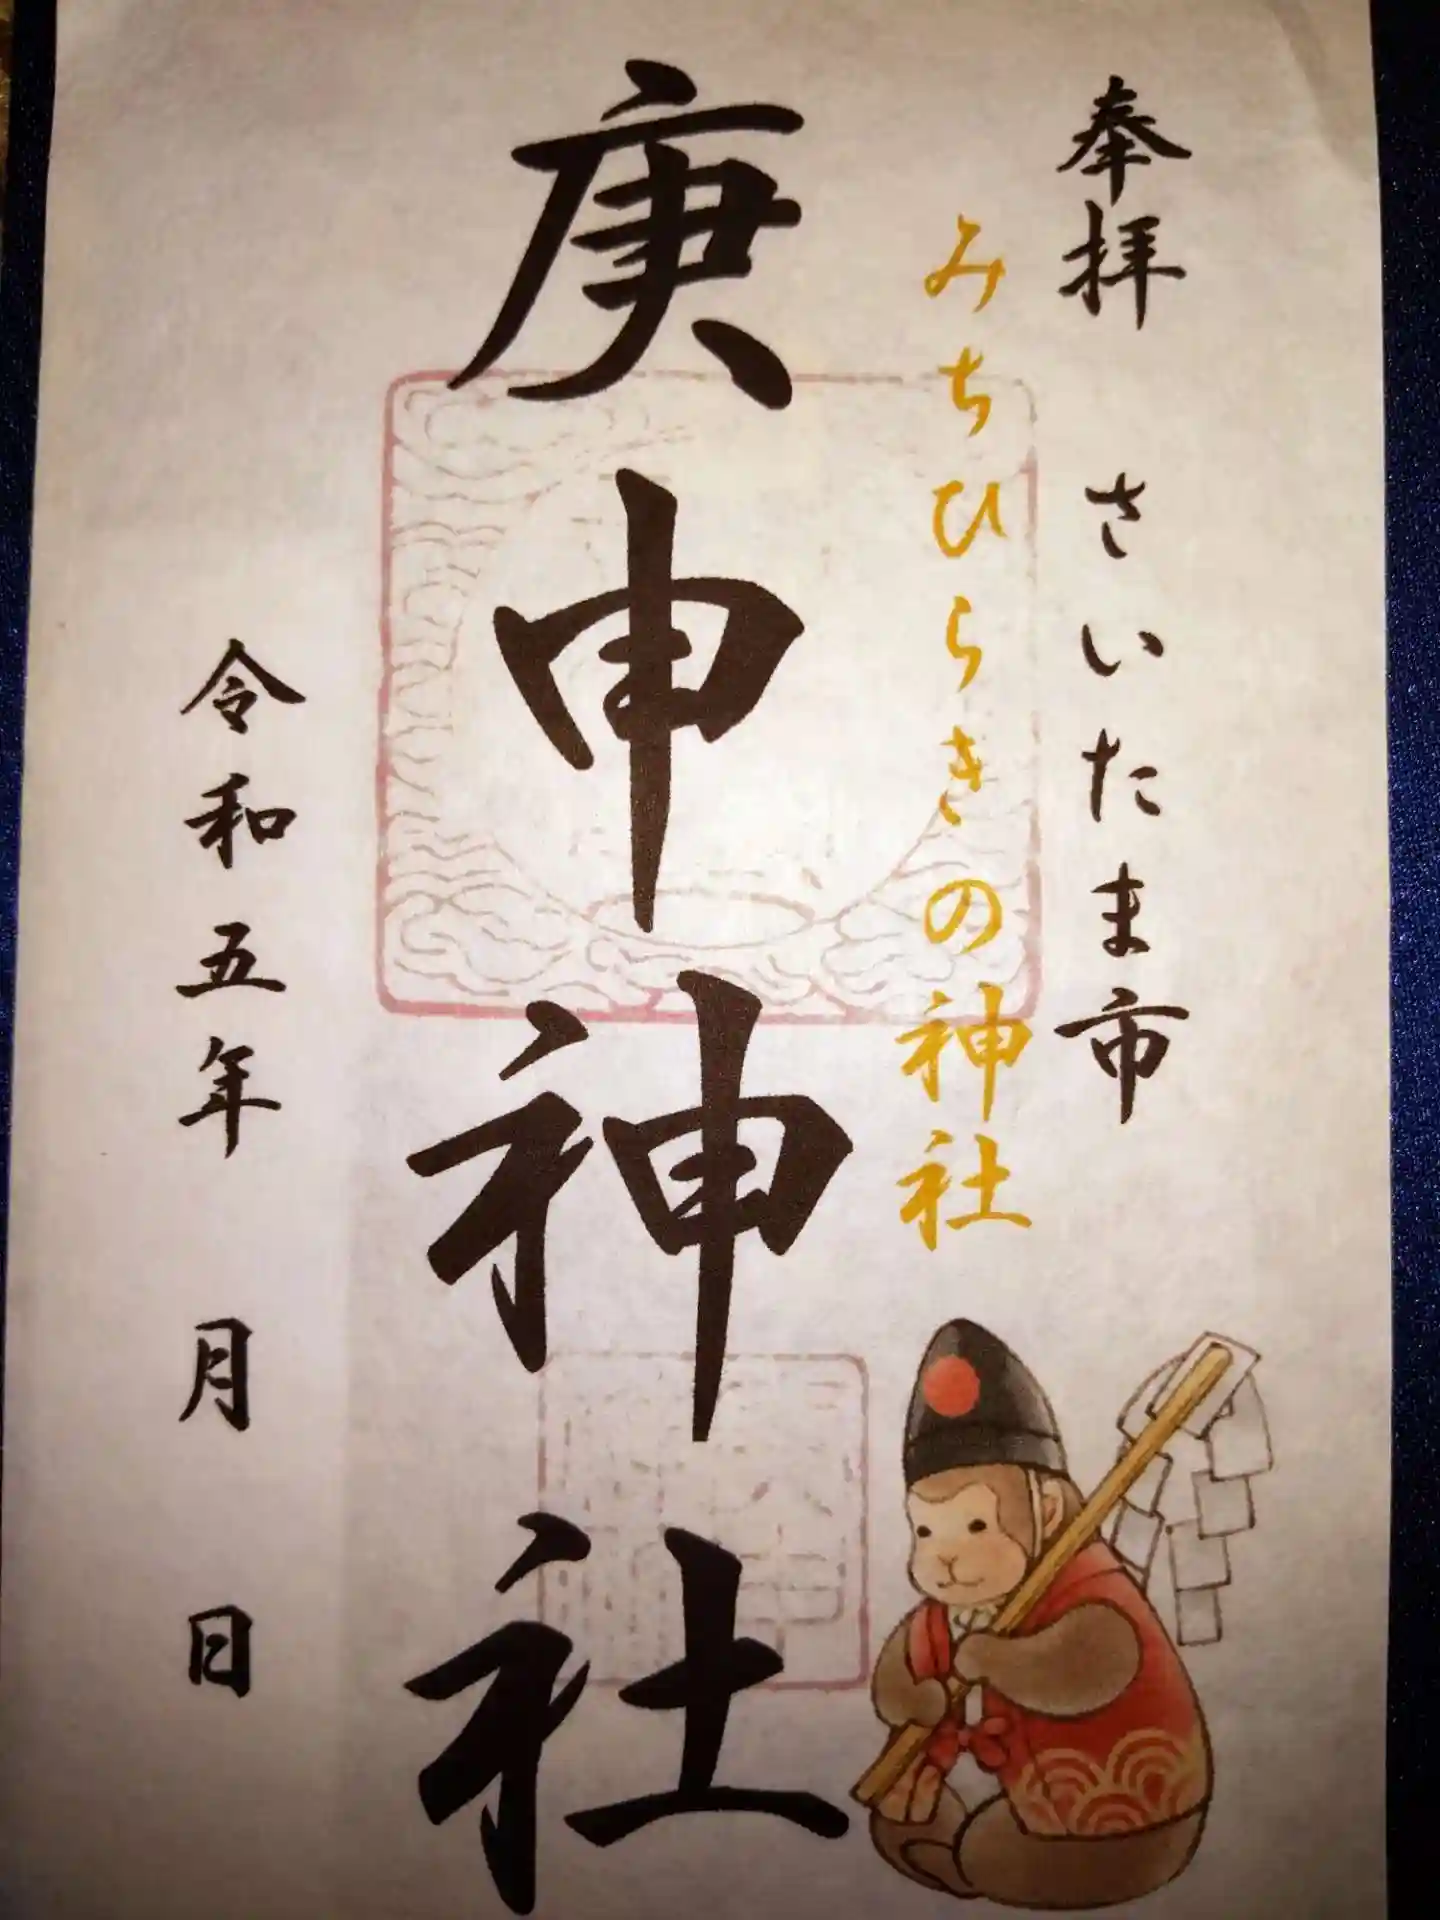 奉拝 さいたま市
みちひらきの神社
庚申神社
令和五年 月 日